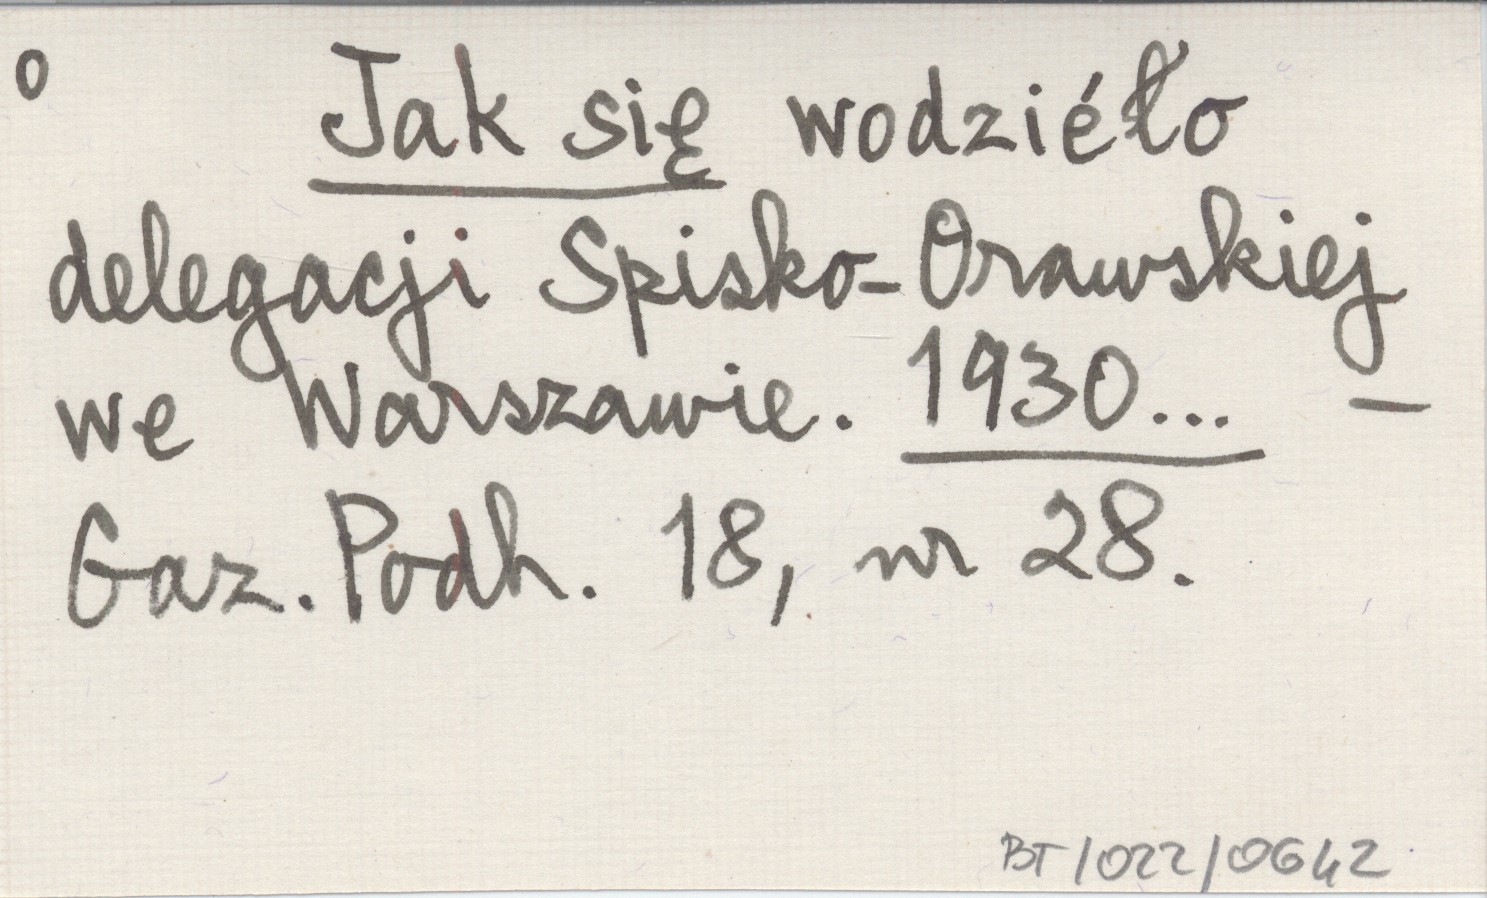 o Jak się wodziéło
delegacji Spisko-Orawskiej
we Warszawie. 1930... –
Gaz. Podh. 18, nr 28.
BT/022/0642